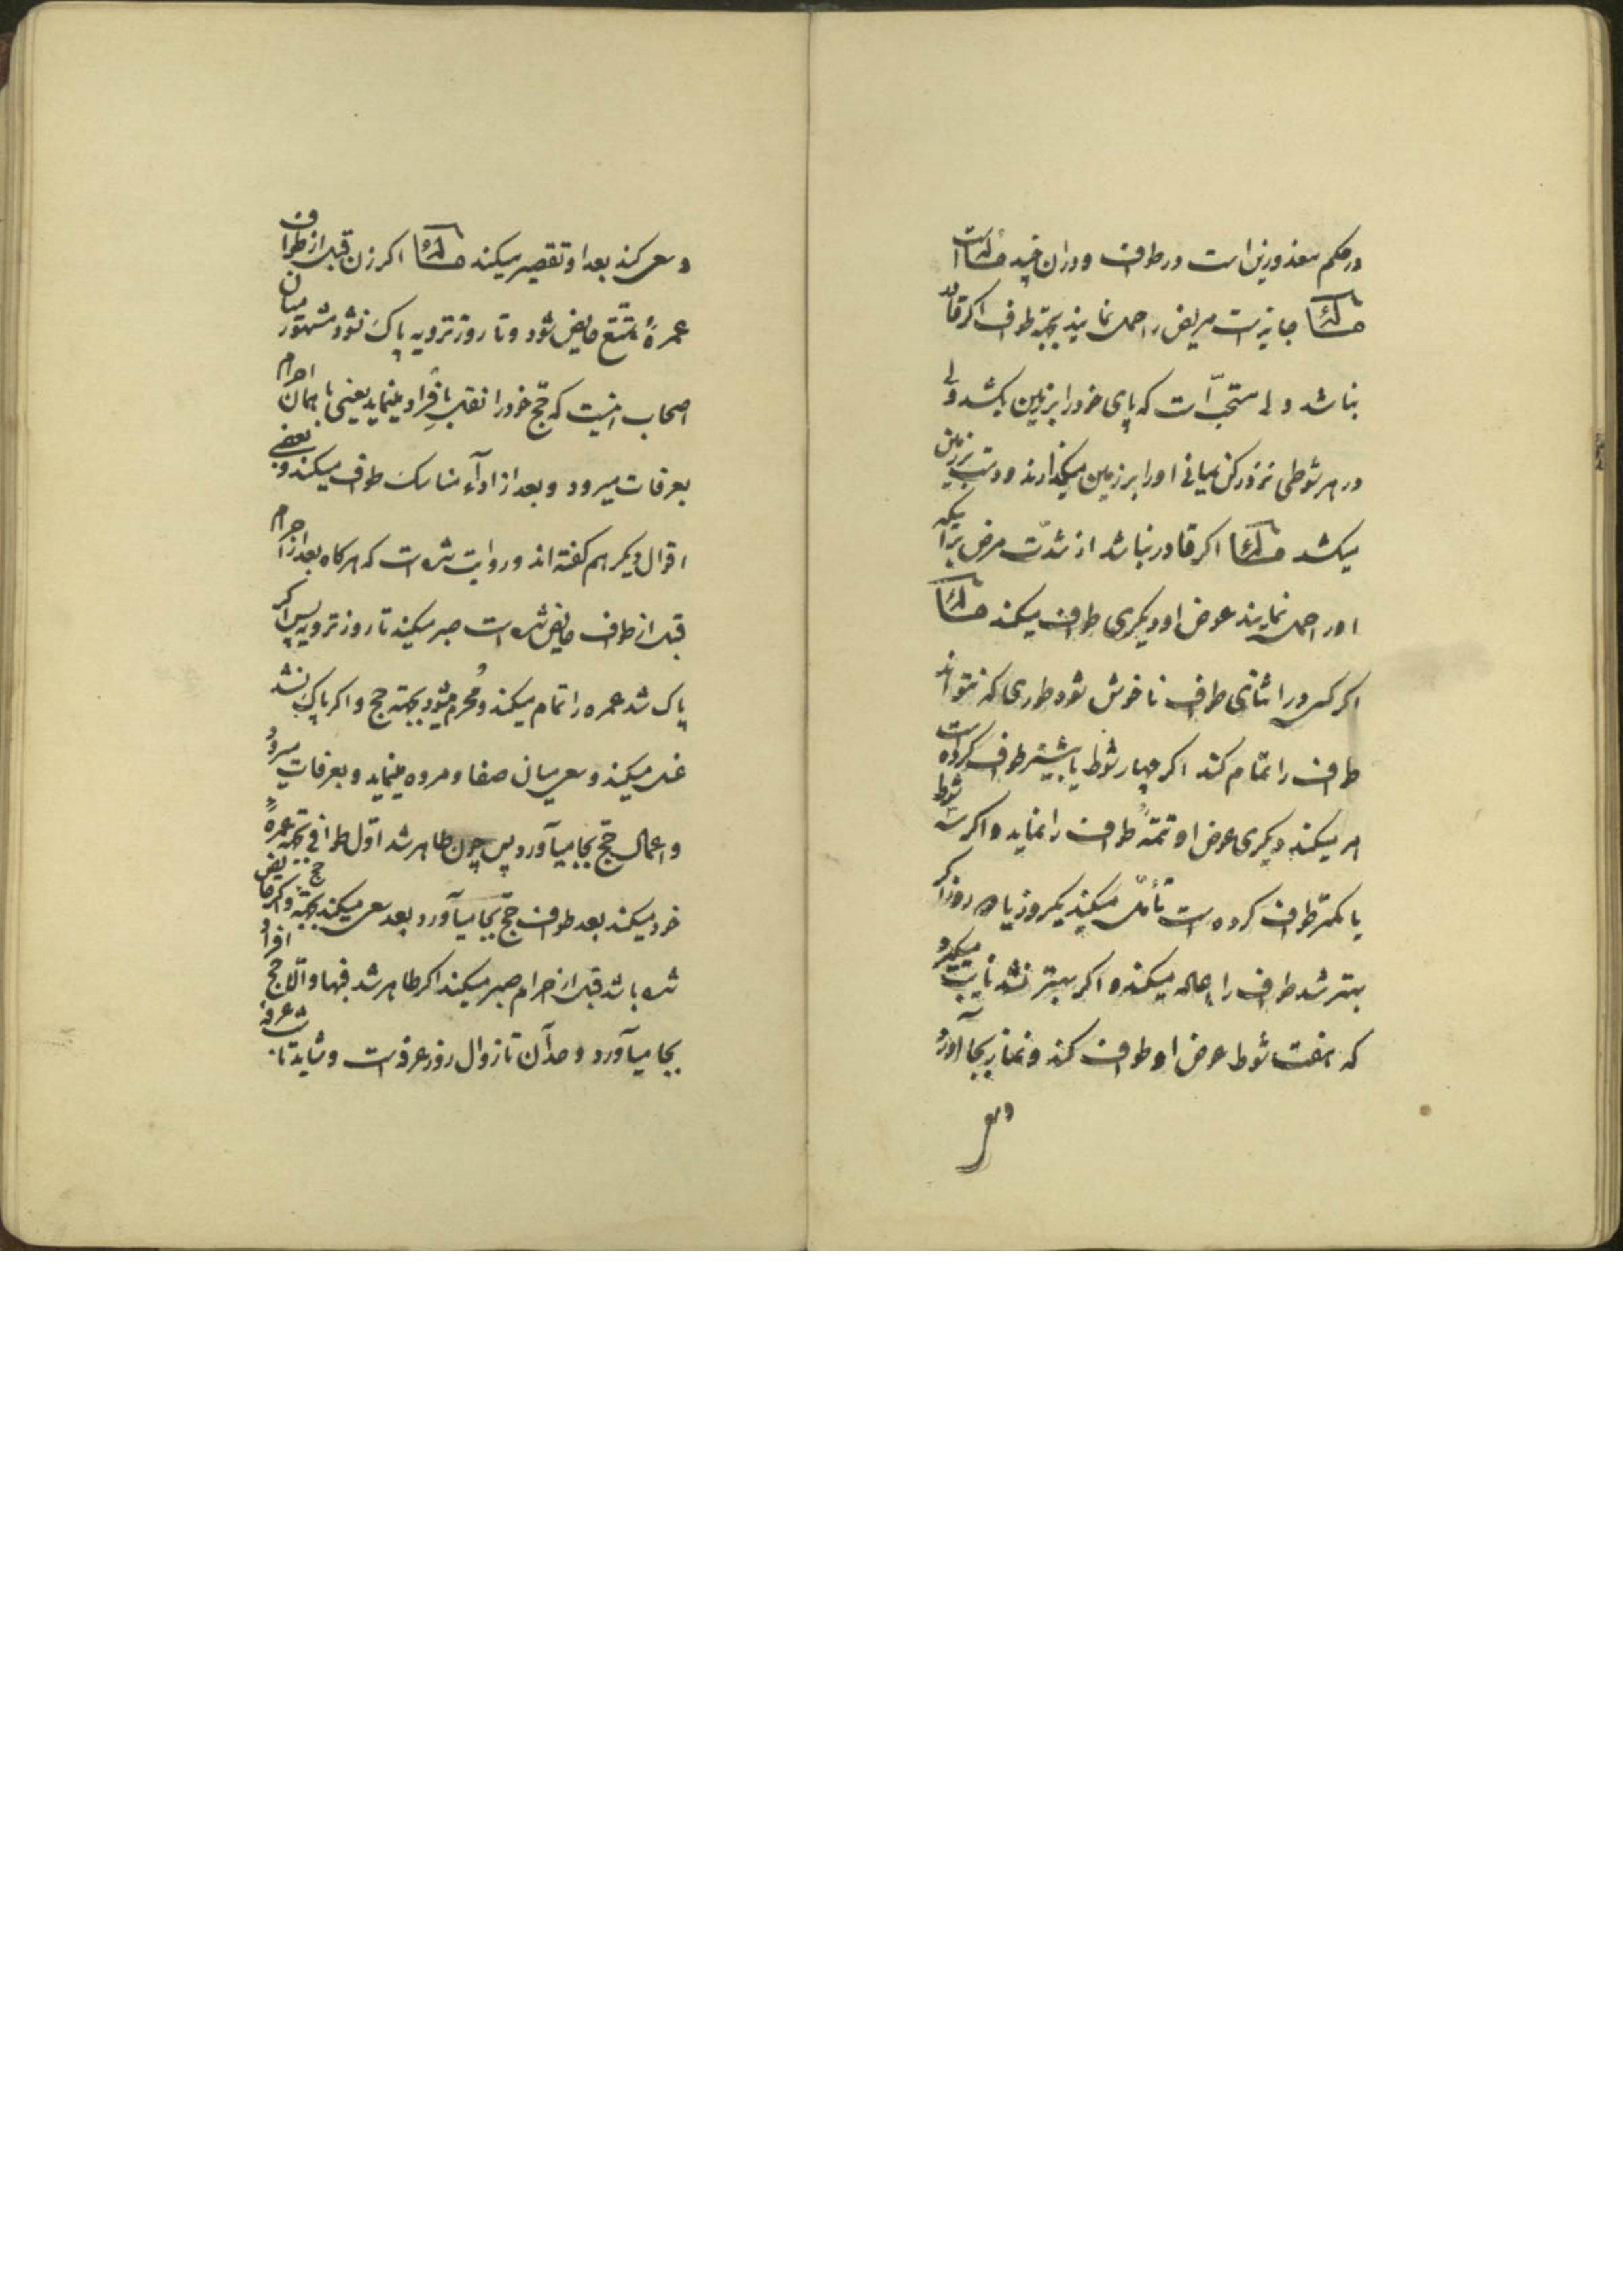 در حکم معذورین است در طواف و در آن چند مسئله است
مسئله جایز است مریض را حمل نمایند بجهة طواف اکر قادر
نباشد ولی مستحبّ است که پای خود را بر زمین بکشد ولی
در هر شوطی نزد رکن یمانی او را بر زمین میکذارند و دست بر زمین
میکشد مسئله اکر قادر نباشد از شدّت مرض برآنکه
او را حمل نمایند عوض او دیکری طواف میکند مسئله
اکر کسی در اثنای طواف ناخوش شود طوری که نتواند
طواف را تمام کند اکر چهار شوط یا بیشتر طواف کرده است
امر میکند دیکری عوض او تتمّهٔ طواف را نماید و اکر سه شوط
یا کمتر طواف کرده است تأمّل میکند یکروز یا دو روز اکر
بهتر شد طواف را اعاده میکند و اکر بهتر نشد نایب میکیرد
که هفت شوط عوض او طواف کند و نماز بجا آورد
وسعی
وسعی کند بعد او تقصیر میکند مسئله اکر زن قبل از طواف
عمرهٔ تمتّع حایض شود و تا روز ترویه پاک نشود مشهور میان
اصحاب اینست که حجّ خود را نقل بافراد مینماید یعنی با همان احرام
بعرفات میرود و بعد از اداء مناسک طواف میکند و بعضی
اقوال دیکر هم کفته اند و روایت شده است که هرکاه بعد از احرام
قبل از طواف حایض شده است صبر میکند تا روز ترویه پس اکر
پاک شد عمره را تمام میکند و مُحرم میشود بجهة حج و اکر پاک نشد
غسل میکند و سعی میان صفا و مروه مینماید و بعرفات میرود
و اعمال حجّ بجا میآورد پس چون طاهر شد اوّل طوافی بجهة عمرهٔ
خود میکند بعد طواف حجّ بجا میآورد و بعد سعی میکند بجهة حج و اکر حایض
شده باشد قبل از احرام صبر میکند اکر طاهر شد فبها و الّا حج افراد
بجا میآورد و حدّ آن تا زوال روز عرفه است و شاید تا شب عرفه